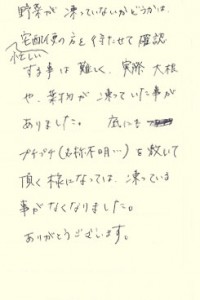 野菜が凍っていないかどうかは、
宅配便の方を待たせて確認
忙しい
する事は難しく、実際大根
や、葉物が凍っていた事が
ありました。 底にも
プチプチ(名称不明…)を敷いて
頂く様になっては、凍っている
事がなくなりました。
ありがとうございます。